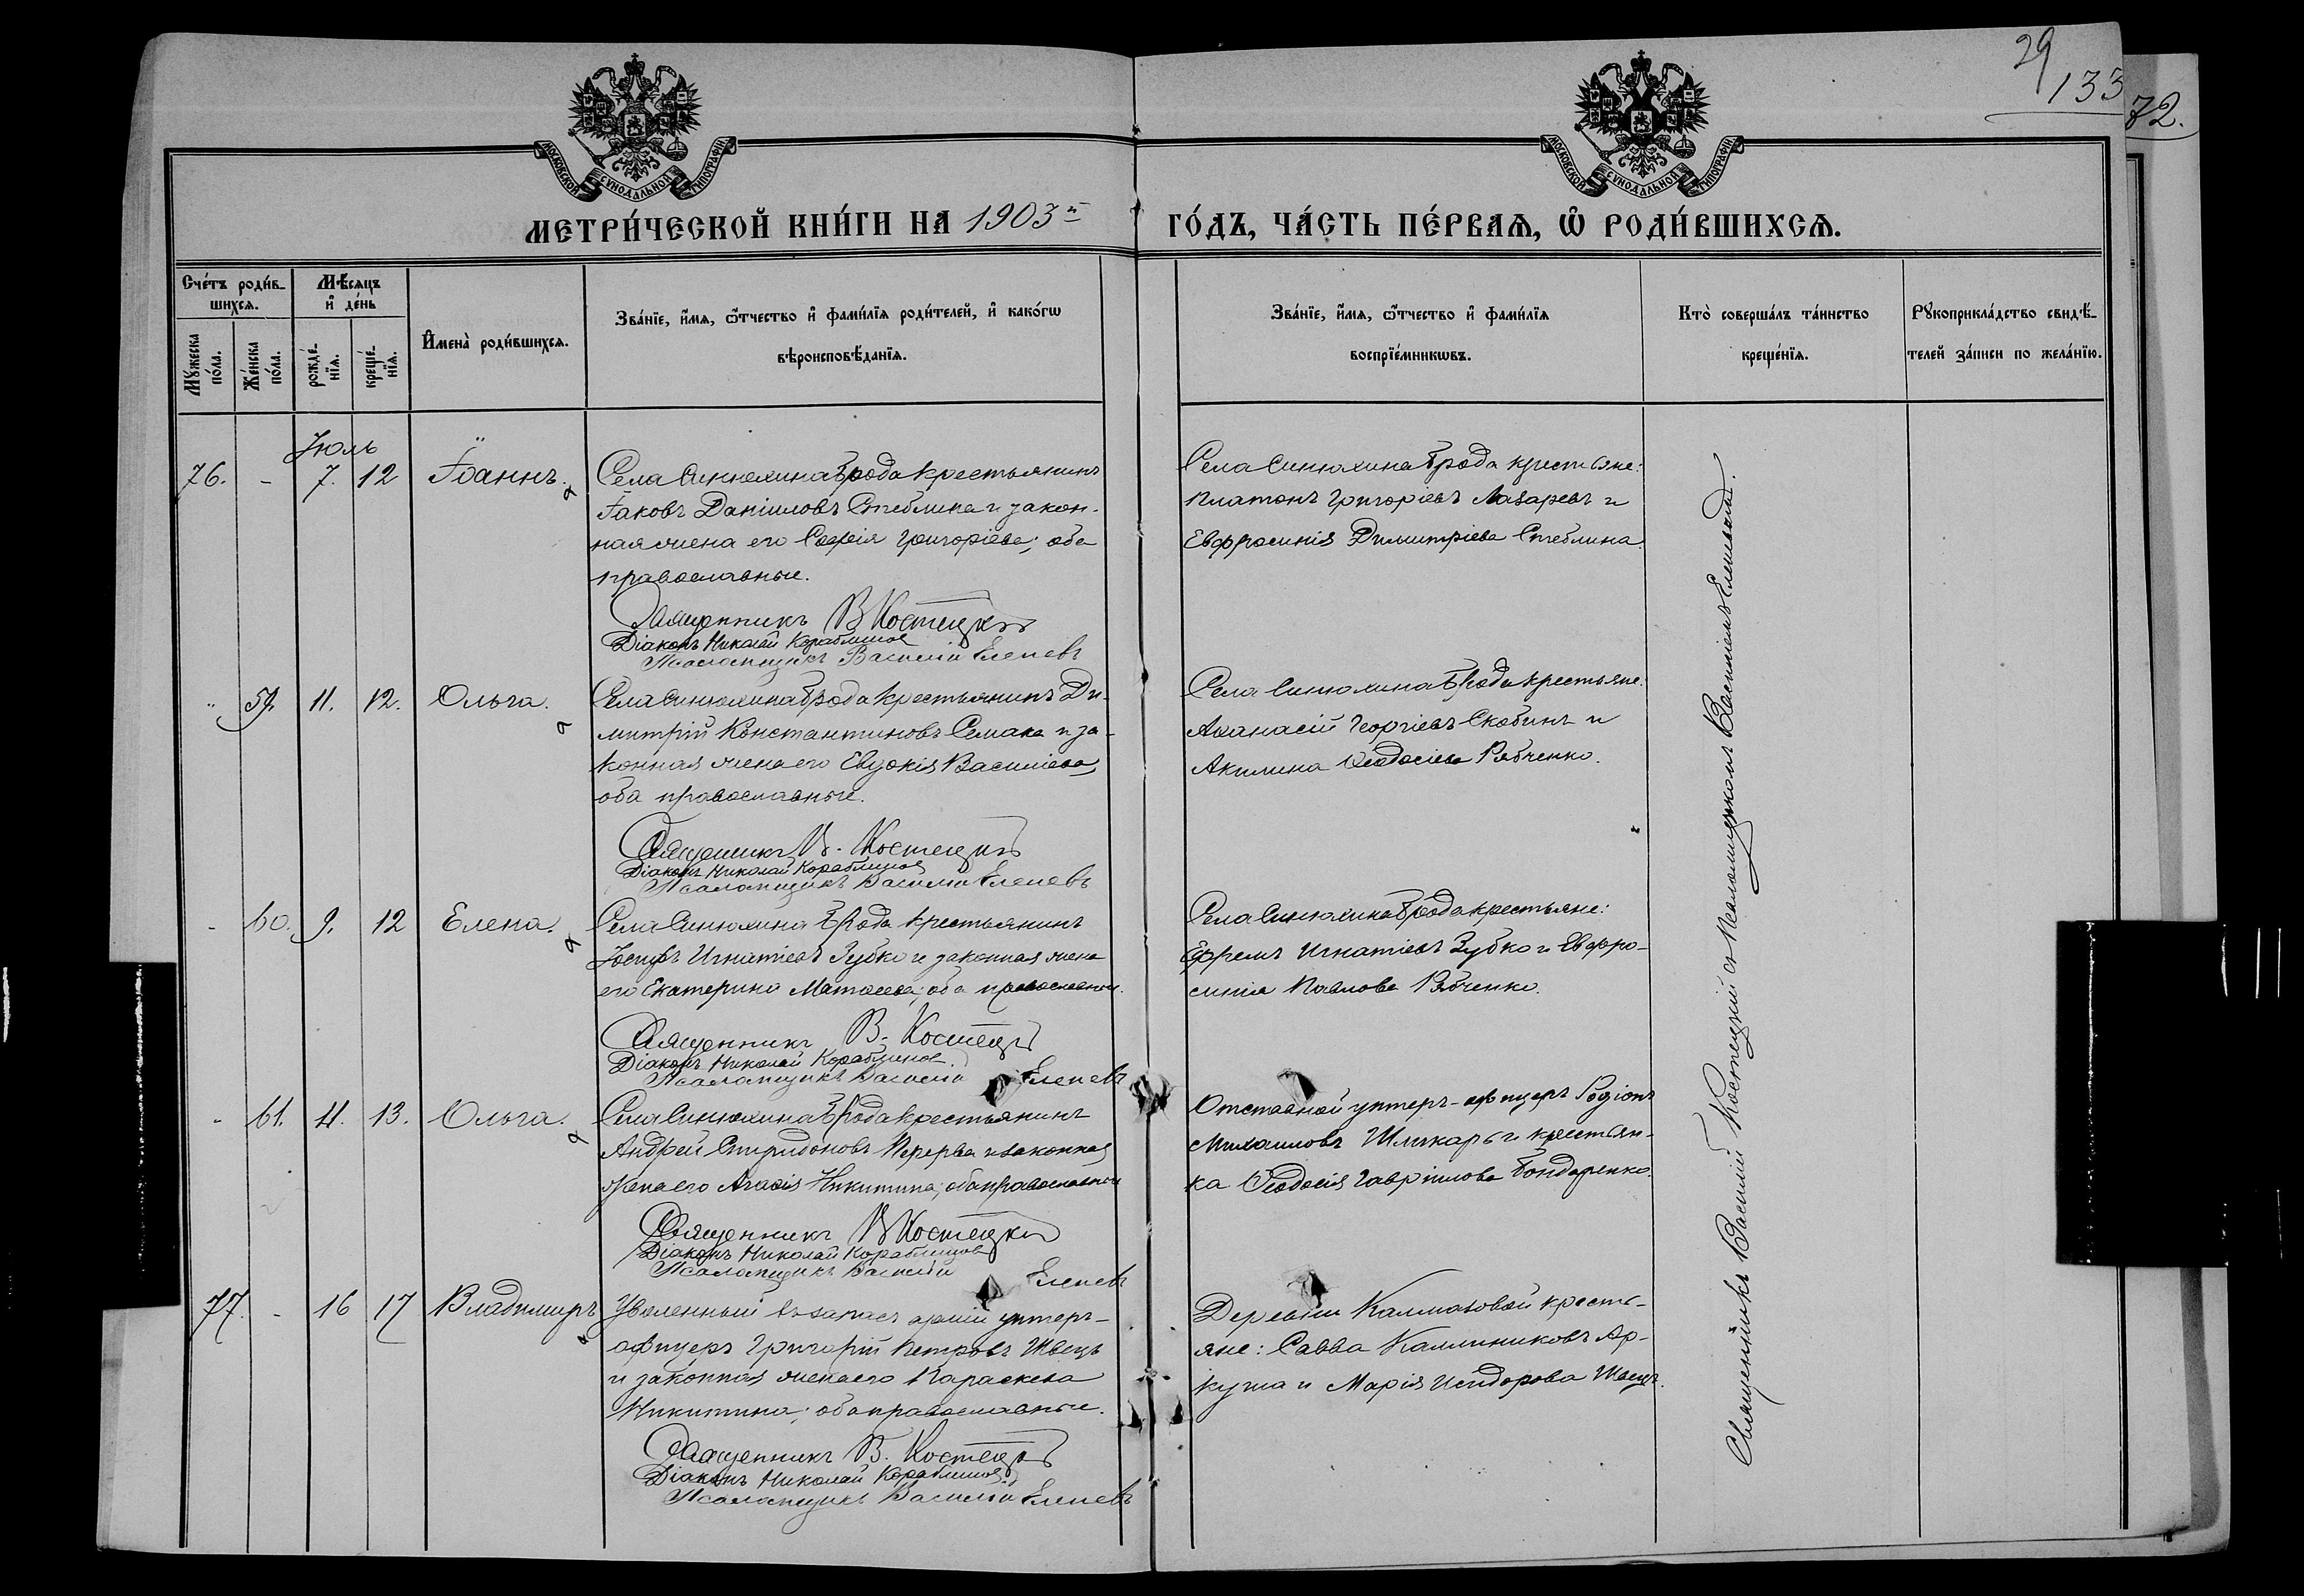 29
133
72.
МОСКОВСКОЙ СУНОДАЛЬНОЙ ТИПОГРАФІИ
МОСКОВСКОЙ СУНОДАЛЬНОЙ ТИПОГРАФІИ
МЕТРИ́ЧЕСКОЙ КНИ́ГИ НА 1903й ГО́ДЪ, ЧА́СТЬ ПЕ́РВАѦ, Ѡ҆ РОДИ́ВШИХСѦ.
Сче́тъ роди́в-
шихсѧ.
Мѣ́сѧцъ
и҆ де́нь
Мꙋ́жеска
по́ла.
Же́нска
по́ла.
рожде́-
нїѧ.
креще́-
нїѧ.
И҆мена̀ роди́вшихсѧ.
Зва́нїе, и҆́мѧ, ѻ҆́тчество и҆ фами́лїѧ роди́телей, и҆ како́гѡ
вѣроисповѣ́данїѧ.
Зва́нїе, и҆́мѧ, ѻ҆́тчество и҆ фами́лїѧ
воспрїе́мникѡвъ.
Кто̀ соверша́лъ та́инство
креще́нїѧ.
Рꙋкоприкла́дство свидѣ́-
телей за́писи по жела́нїю.
Іюль
76. - 7. 12 Іоаннъ.
Села Синюхина Брода крестьянинъ
Іаковъ Даніиловъ Стеблина и закон-
ная жена его Софія Григоріева; оба
православные.
Священникъ В Костецкій
Діаконъ Николай Кораблиновъ
Псаломщикъ Василій Еленевъ
Села Синюхина Брода крестьяне:
Платонъ Григоріевъ Лазаревъ и
Евфросинія Димитріева Стеблина.
" 59. 11. 12. Ольга.
Села Синюхина Брода крестьянинъ Ди-
митрій Константиновъ Семака и за-
конная жена его Евдокія Василіева,
оба православные.
Священникъ В. Костецкій
Діаконъ Николай Кораблиновъ
Псаломщикъ Василій Еленевъ
Села Синюхина Брода крестьяне:
Аѳанасій Георгіевъ Скобинъ и
Акилина Ѳеодосіева Рябченко.
- 60. 9. 12 Елена.
Села Синюхина Брода крестьянинъ
Іосифъ Игнатіевъ Зубко и законная жена
его Екатерина Матѳеева; оба православные.
Священникъ В. Костецкій
Діаконъ Николай Кораблиновъ
Псаломщикъ Василій Еленевъ
Села Синюхина Брода крестьяне:
Ефремъ Игнатіевъ Зубко и Евфро-
синія Павлова Рябченко.
- 61. 11. 13. Ольга.
Села Синюхина Брода крестьянинъ
Андрей Спиридоновъ Перерва и законная
жена его Агаѳія Никитина; оба православные
Священникъ В Костецкій
Діаконъ Николай Кораблиновъ
Псаломщикъ Василій Еленевъ
Отставной унтеръ-офицеръ Родіонъ
Михаиловъ Шликарь и крестьян-
ка Ѳеодосія Гавріилова Бондаренко.
77. - 16 17 Владимиръ
Уволенный въ запасъ арміи унтеръ-
офицеръ Григорій Петровъ Швецъ
и законная жена его Параскева
Никитина; оба православные.
Священникъ В. Костецкій
Діаконъ Николай Кораблиновъ
Псаломщикъ Василій Еленевъ
Деревни Калмазовой кресть-
яне: Савва Каллиниковъ Ар-
куша и Марія Исидорова Швецъ.
Священникъ Василій Костецкій съ Псаломщикомъ Василіемъ Еленевымъ.